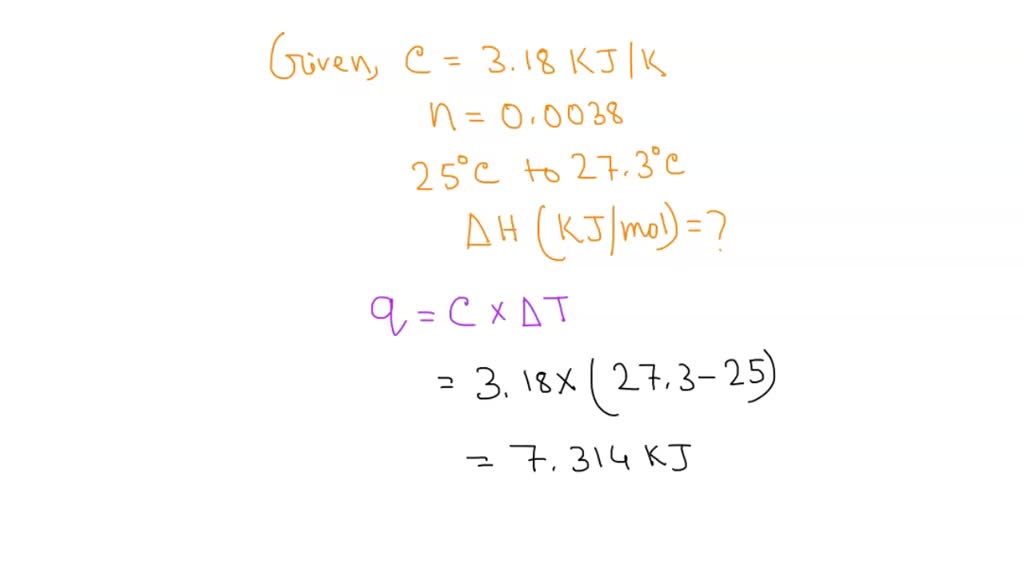 Given, C = 3.18 KJ/K
n = 0.0038
25°C to 27.3°C
ΔH (KJ/mol) = ?
q = C × ΔT
= 3.18 × (27.3 - 25)
= 7.314 KJ